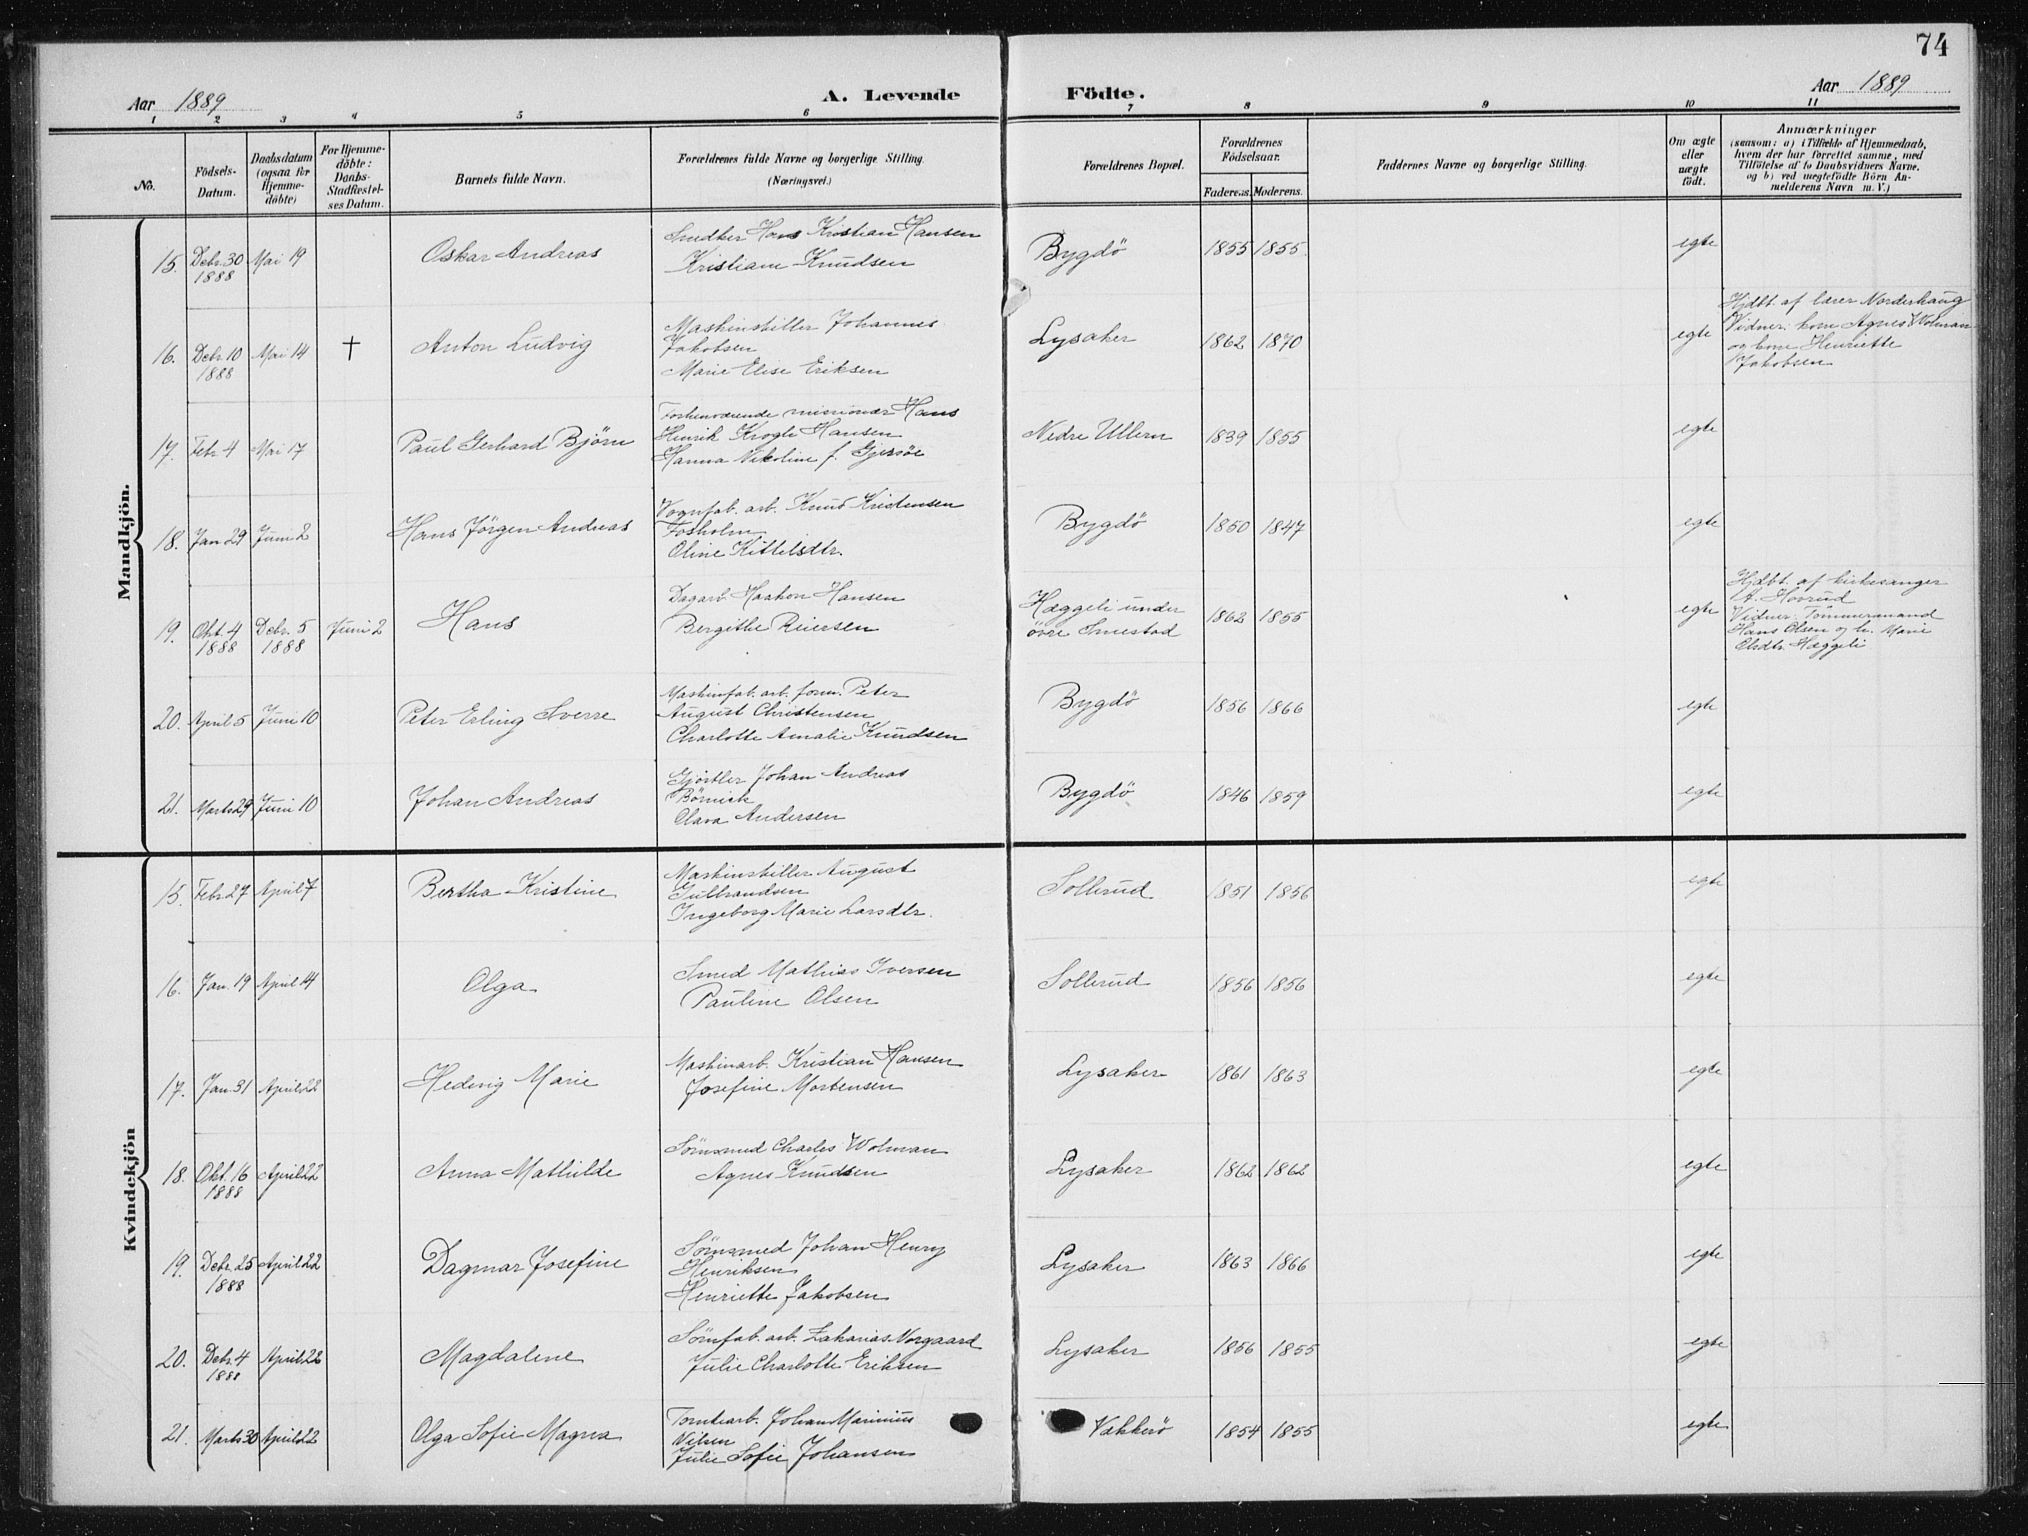 74
Aar 1889 A. Levende Fødte. Aar 1889
1 2 3 4 5 6 7 8 9 10 11
No.
Fødsels-Datum.
Daabsdatum (ogsaa for Hjemmedöbte)
For Hjemmedöbte: Daabs-Stadfæstelses Datum.
Barnets fulde Navn.
Forældrenes fulde Navne og borgerlige Stilling.
(Næringsvei.)
Forældrenes Bopæl.
Forældrenes Fødselsaar.
Faderens. Moderens.
Faddernes Navne og borgerlige Stilling.
Om ægte eller uægte födt.
Anmærkninger
(saasom: a) i Tilfælde af Hjemmedaab,
hvem der har forrettet samme, med
Tilföielse af to Daabsvidners Navne,
og b) ved uægtefödte Börn An-
melderens Navn m. V.)
Mandkjön.
15. Debr. 30 1888 Mai 19 Oskar Andreas Snedker Hans Kristian Hansen
Kristiane Knudsen Bygdö 1855 1855 egte
16. Debr. 10 1888 Mai 14 † Anton Ludvig Maskinstiller Johannes
Jakobsen
Marie Elise Eriksen Lysaker 1862 1870 egte
Hjdbt. af lærer Norderhaug
Vidner: kone Agnes Wolman
og kone Henriette
Jakobsen
17. Febr. 4 Mai 17 Paul Gerhard Björn Forhenværende missionær Hans
Henrik Krogh Hansen
Hanna Nikoline f. Gjersöe Nedre Ullern 1839 1855 egte
18. Jan 29 Juni 2 Hans Jörgen Andreas Vognfab. arb. Knud Kristensen
Fosholm
Oline Kittelsdtr. Bygdö 1850 1847 egte
19. Okt. 4 1888 Debr. 5 1888 Juni 2 Hans Dagarb. Haakon Hansen
Bergithe Reiersen Hæggeli under
övre Smestad 1862 1855 egte
Hjdbt. af kirkesanger
A. Hovrud
Vidner: Tömmermand
Hans Olsen og h. Marie
Olsdtr. Hæggeli
20. April 5 Juni 10 Peter Erling Sverre Maskinfab. arb. form. Peter
August Christensen
Charlotte Amalie Knudsen Bygdö 1856 1866 egte
21. Marts 29 Juni 10 Johan Andreas Gjörtler Johan Andreas
Clara Andersen Bygdö 1846 1859 egte
Kvindekjön
15. Febr. 27 April 7 Bertha Kristine Maskinstiller August
Gulbrandsen
Ingeborg Marie Larsdtr. Sollerud 1851 1856 egte
16. Jan. 19 April 14 Olga Smed Mathias Iversen
Pauline Olsen Sollerud 1856 1856 egte
17. Jan. 31 April 22 Hedvig Marie Maskinarb. Kristian Hansen
Josefine Mortensen Lysaker 1861 1863 egte
18. Okt. 16 1888 April 22 Anna Mathilde Sömsmed Charles Wolman
Agnes Knudsen Lysaker 1862 1862 egte
19. Debr. 25 1888 April 22 Dagmar Josefine Sömsmed Johan Henry
Henriksen
Henriette Jakobsen Lysaker 1863 1866 egte
20. Debr. 4 1888 April 22 Magdalene Sömfab. arb. Zakarias Norgaard
Julie Charlotte Eriksen Lysaker 1856 1855 egte
21. Marts 30 April 22 Olga Sofie Magna Tomtearb. Johan Marinius
Nilsen
Julie Sofie Johansen Vækkerö 1854 1855 egte